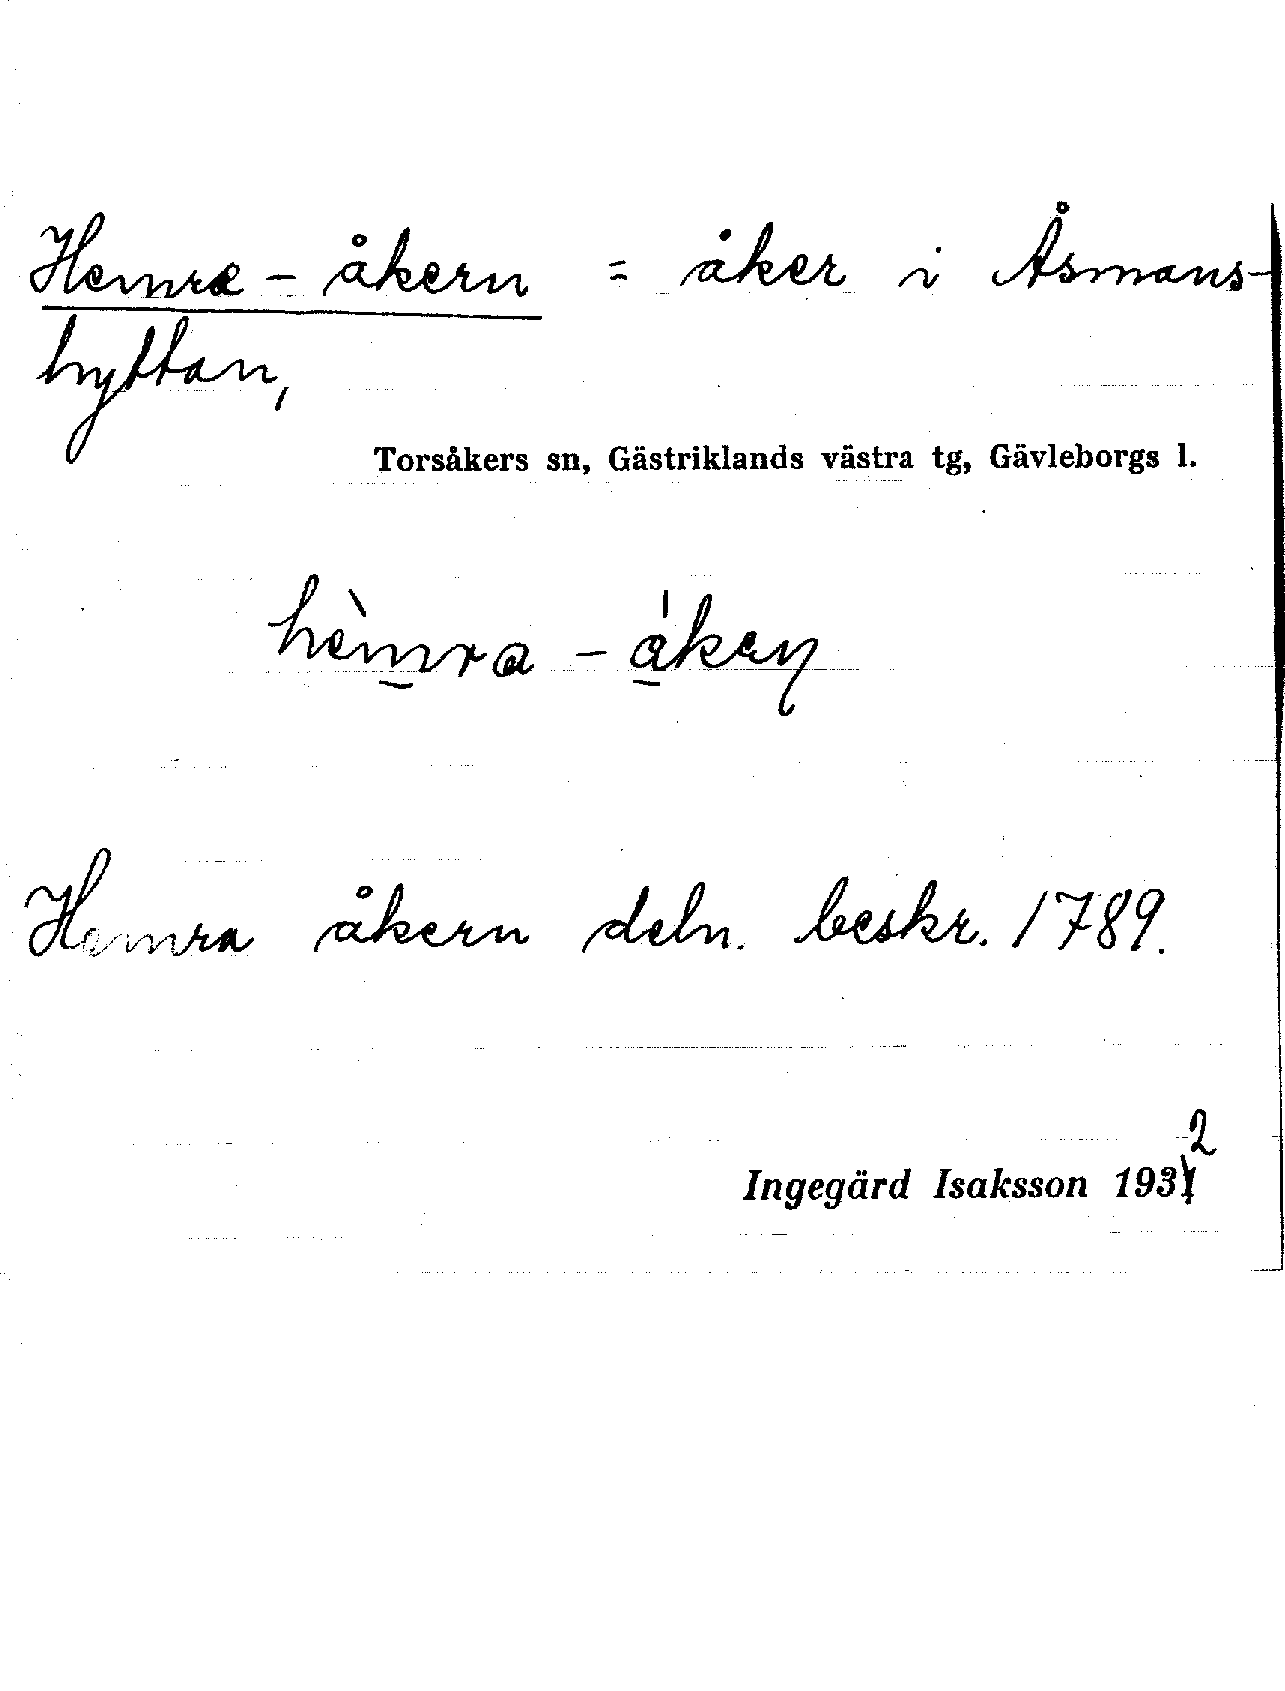 Hemra-åkern = åker i Åsmans-
hyttan,
Torsåkers sn, Gästriklands västra tg, Gävleborgs l.
hèm̠ra - á̠kaṇ
Hemra åkern deln. beskr. 1789.
Ingegärd Isaksson 1932